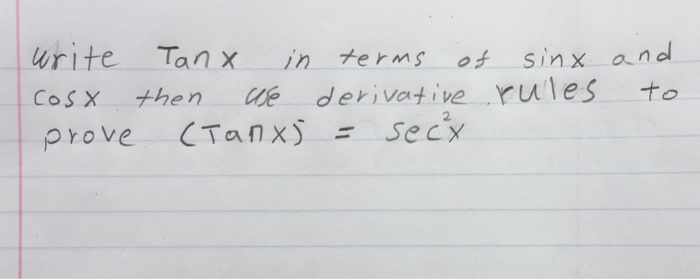 write Tan x in terms of sinx and
cos x then use derivative rules to
prove (Tanx)' = sec²x